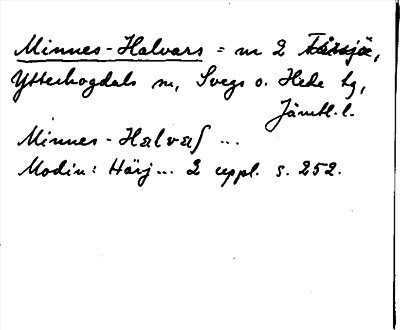 Minnes-Halvars = nr 2 Fåssjö,
Ytterhogdals sn, Svegs o. Hede hg,
Jämtl. l.
Minnes-Halvaſ ...
Modin: Härj... 2 uppl. s. 252.